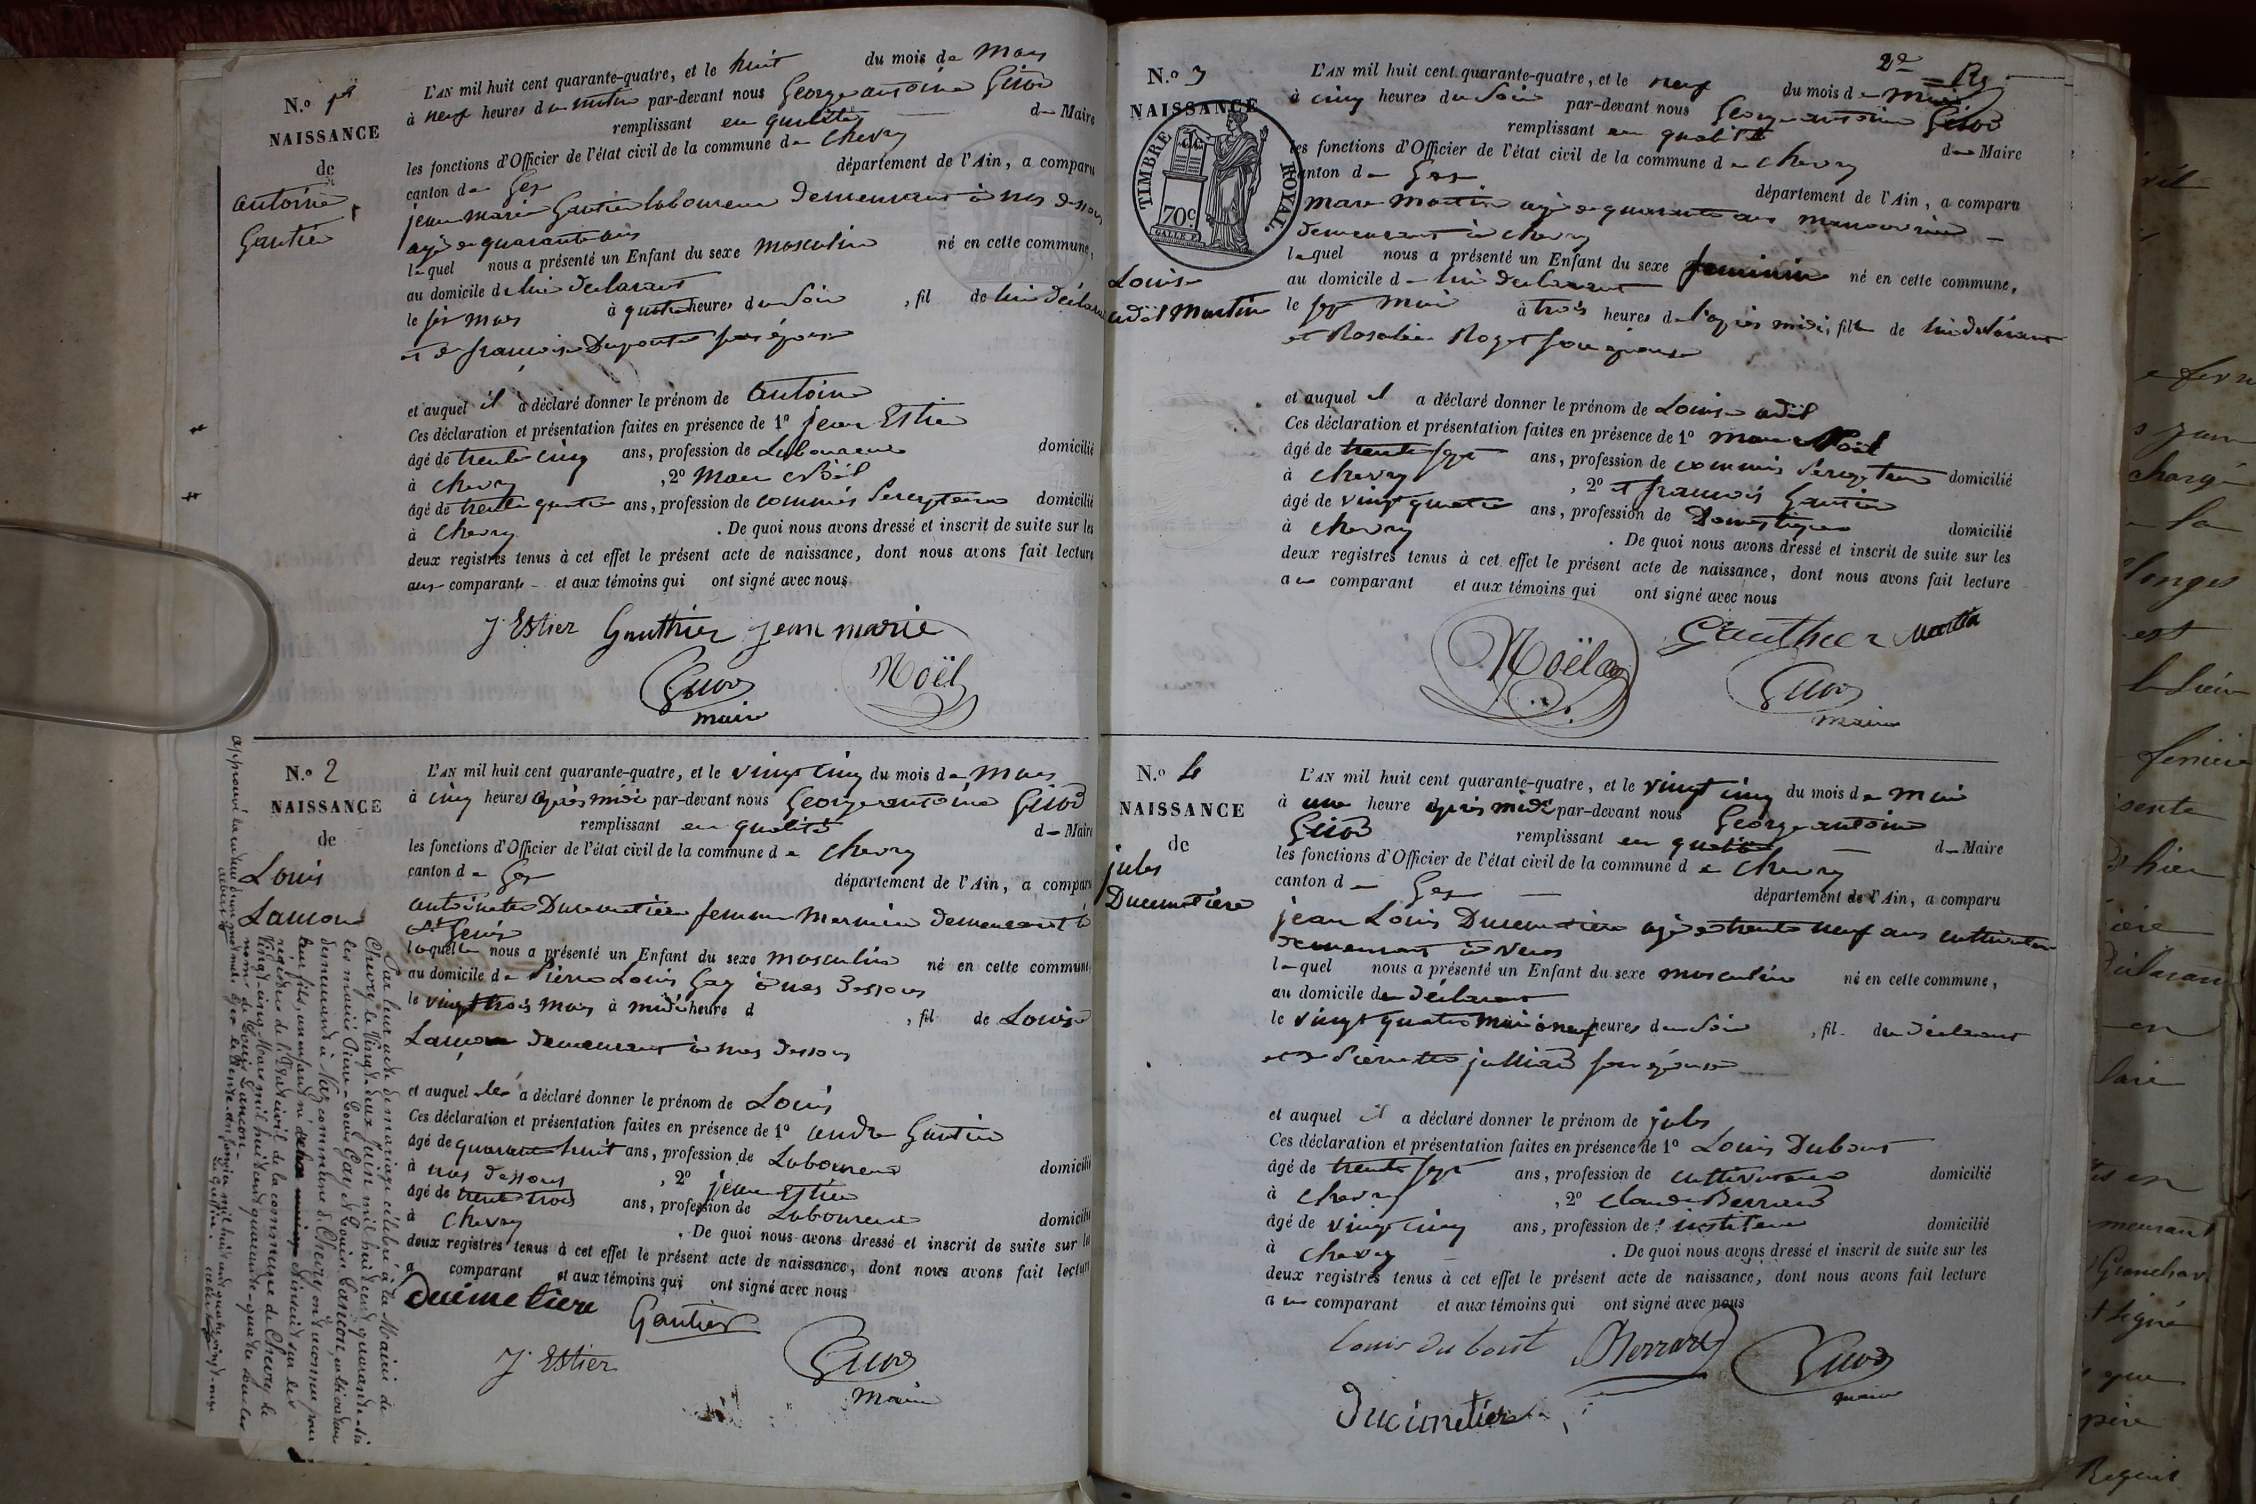 N.º 1er
NAISSANCE
de
antoine
Gautier
L'AN mil huit cent quarante-quatre, et le huit du mois de Mars
à neuf heures du matin par-devant nous George antoine Girod
remplissant en qualité de Maire
les fonctions d'Officier de l'état civil de la commune de Chevry
canton de Gex département de l'Ain, a comparu
jean marie Gautier laboureur demeurant à nas dessous
agé de quarante ans
lequel nous a présenté un Enfant du sexe masculin né en cette commune,
au domicile de lui déclarant
le six mars à quatre heures du soir, fil de lui déclarant
et de françoise Duponte son épouse
et auquel il a déclaré donner le prénom de antoine
Ces déclaration et présentation faites en présence de 1º jean Estier
âgé de trente cinq ans, profession de Laboureur domicilié
à Chevry, 2º Marc Noël
âgé de trente quatre ans, profession de commis Percepteur domicilié
à Chevry. De quoi nous avons dressé et inscrit de suite sur les
deux registres tenus à cet effet le présent acte de naissance, dont nous avons fait lecture
aux comparants et aux témoins qui ont signé avec nous
J Estier Gauthier jean marie
Girod Noël
maire
N.º 2
NAISSANCE
de
Louis
Lancon
L'AN mil huit cent quarante-quatre, et le vingt cinq du mois de Mars
à cinq heures après midi par-devant nous George antoine Girod
remplissant en qualité de Maire
les fonctions d'Officier de l'état civil de la commune de Chevry
canton de Gex département de l'Ain, a comparu
antoinette Ducimetière femme Mermier demeurant à
St Genis
laquelle nous a présenté un Enfant du sexe masculin né en cette commune
au domicile de Pierre Louis Gay à nas Dessous
le vingt trois mars à midi heure d , fil de Louise
Lançon demeurant à nas dessous
et auquel elle a déclaré donner le prénom de Louis
Ces déclaration et présentation faites en présence de 1º andré Gautier
âgé de quarante huit ans, profession de Laboureur domicilié
à nas dessous, 2º jean Estier
âgé de trente trois ans, profession de Laboureur domicilié
à Chevry. De quoi nous avons dressé et inscrit de suite sur les
deux registres tenus à cet effet le présent acte de naissance, dont nous avons fait lecture
a comparant et aux témoins qui ont signé avec nous
Ducimetiere Gautier
J Estier Girod
maire
Par leur acte de mariage célébré à la Mairie de
Chevry le Vingt-deux Juin mil huit cent quarante-six
les mariés Pierre-Louis Gay et Louise Lancon, cultivateurs
demeurant à Naz commune de Chevry ont reconnu pour
leur fils, un enfant né inscrit sur les
registres de l'Etat civil de la commune de Chevry le
Vingt-cinq Mars mil huit cent quarante-quatre sous les
noms de Louis Lancon.
Le Greffier
2e Rg
N.º 3
NAISSANCE
TIMBRE ROYAL
70c.
Louise
adèl Martin
L'AN mil huit cent quarante-quatre, et le neuf du mois de mai
à cinq heures du Soir par-devant nous George antoine Girod
remplissant en qualité de Maire
les fonctions d'Officier de l'état civil de la commune de Chevry
canton de Gex département de l'Ain, a comparu
marc Martin agé de quarante ans manouvrier
demeurant à Chevry
lequel nous a présenté un Enfant du sexe feminin né en cette commune,
au domicile de lui déclarant
le sept Mai à trois heures de l'après midi, fille de lui déclarant
et Rosalie Roget son épouse
et auquel il a déclaré donner le prénom de Louise adèl
Ces déclaration et présentation faites en présence de 1º marc Noël
âgé de trente sept ans, profession de commis Percepteur domicilié
à Chevry, 2º françois Gautier
âgé de vingt quatre ans, profession de Domestique domicilié
à Chevry. De quoi nous avons dressé et inscrit de suite sur les
deux registres tenus à cet effet le présent acte de naissance, dont nous avons fait lecture
au comparant et aux témoins qui ont signé avec nous
Noël Gauthier Martin
Girod
maire
N.º 4
NAISSANCE
de
jules
Ducimetière
L'AN mil huit cent quarante-quatre, et le vingt cinq du mois de Mai
à une heure après midi par-devant nous George antoine
Girod remplissant en qualité de Maire
les fonctions d'Officier de l'état civil de la commune de Chevry
canton de Gex département de l'Ain, a comparu
jean Louis Ducimetière agé de trente neuf ans cultivateur
demeurant à Veras
lequel nous a présenté un Enfant du sexe masculin né en cette commune,
au domicile du déclarant
le vingt quatre Mai à neuf heures du Soir, fil du déclarant
et de Pierrette julliard son épouse
et auquel il a déclaré donner le prénom de jules
Ces déclaration et présentation faites en présence de 1º Louis Dubout
âgé de trente sept ans, profession de cultivateur domicilié
à Chevry, 2º Claude Berrard
âgé de vingt cinq ans, profession de instituteur domicilié
à Chevry. De quoi nous avons dressé et inscrit de suite sur les
deux registres tenus à cet effet le présent acte de naissance, dont nous avons fait lecture
au comparant et aux témoins qui ont signé avec nous
Louis dubout Berrard Girod
maire
Ducimetière